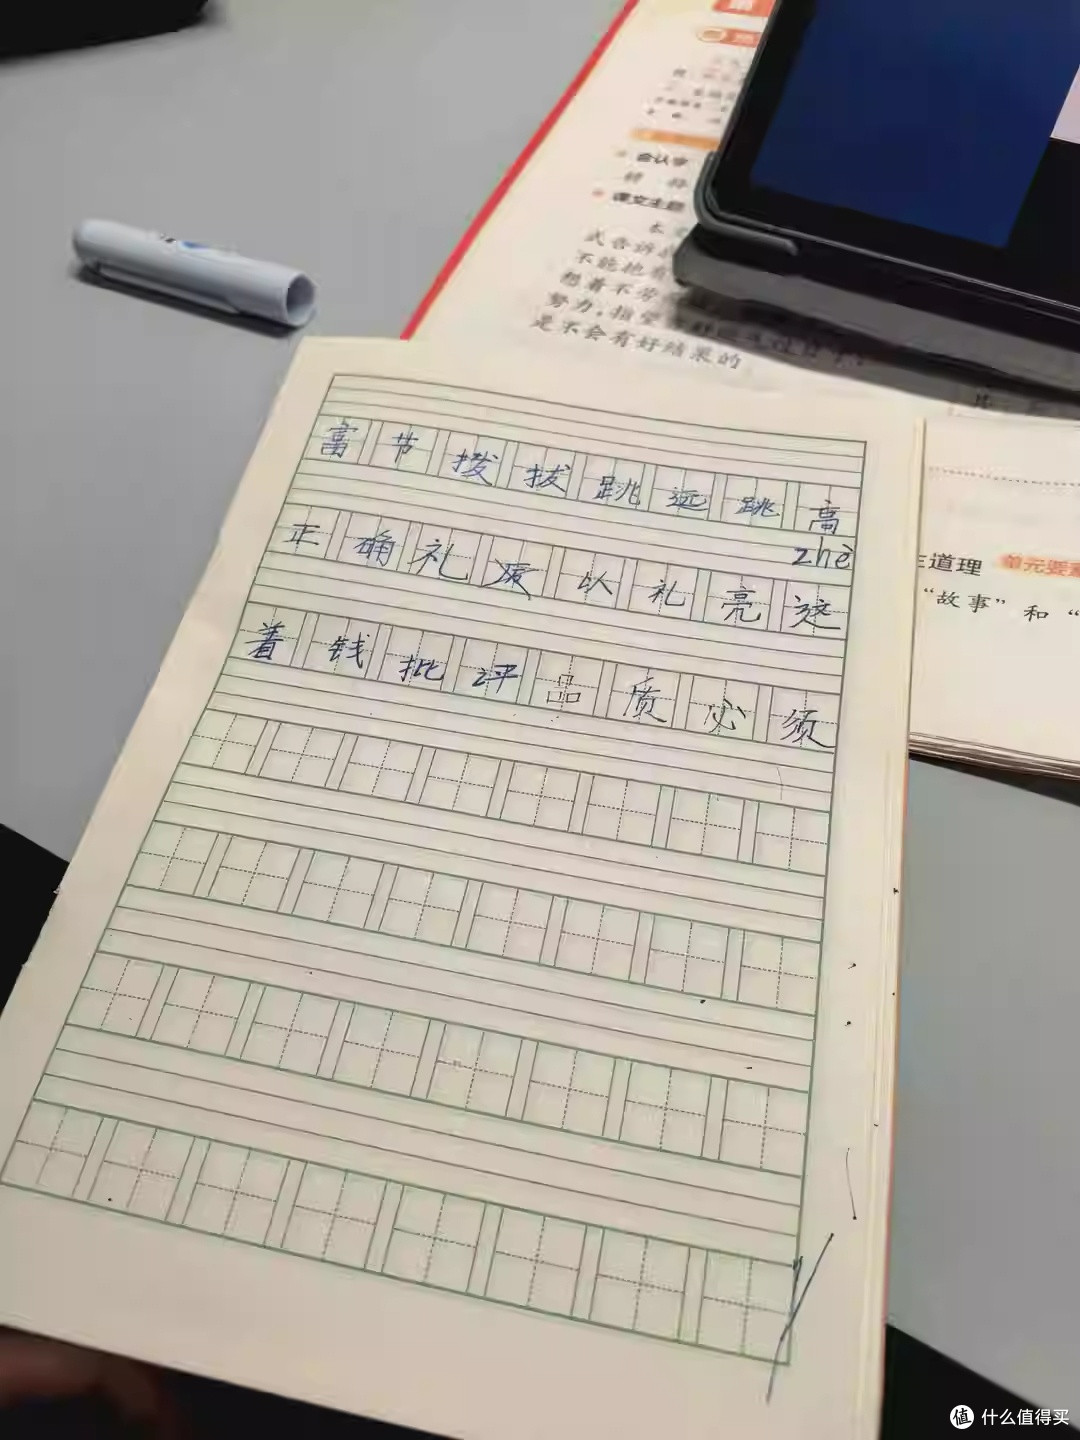 会认字
课文主题
不能抱有
想着不劳
努力，指望
是不会有好结果的
富节拨拔跳远跳高
zhè
正确礼以礼亮这
着钱批评品质必须
主道理 单元要素
“故事”和“
值 什么值得买